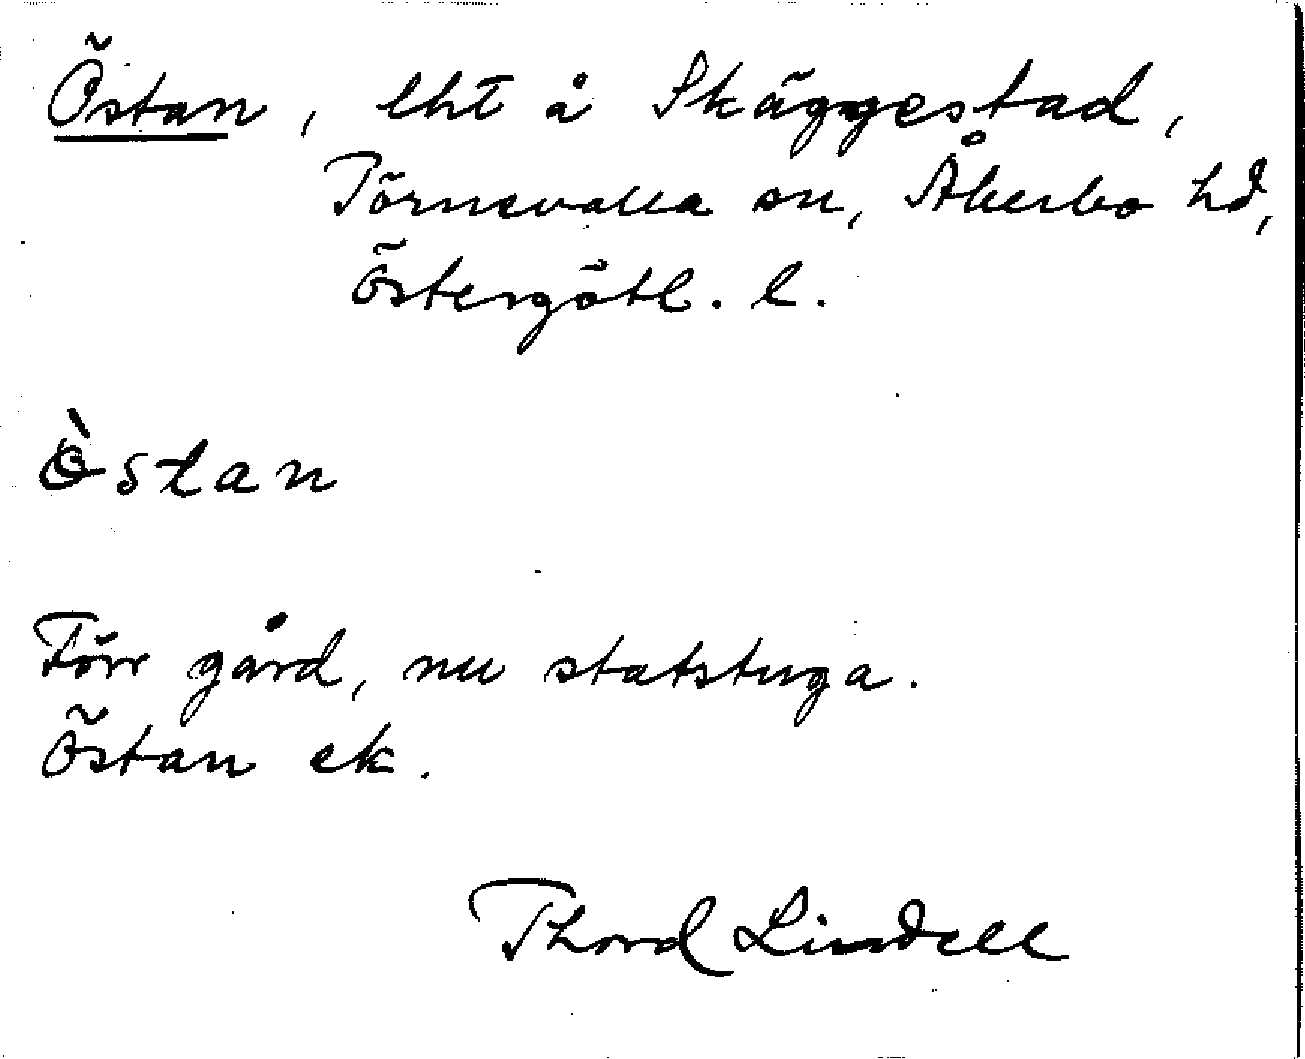 Östan, lht å Skäggestad,
Törnevalla sn, Åkerbo hd,
Östergötl. l.
Östan
Förr gård, nu statstuga.
Östan ek.
Thord Lindell